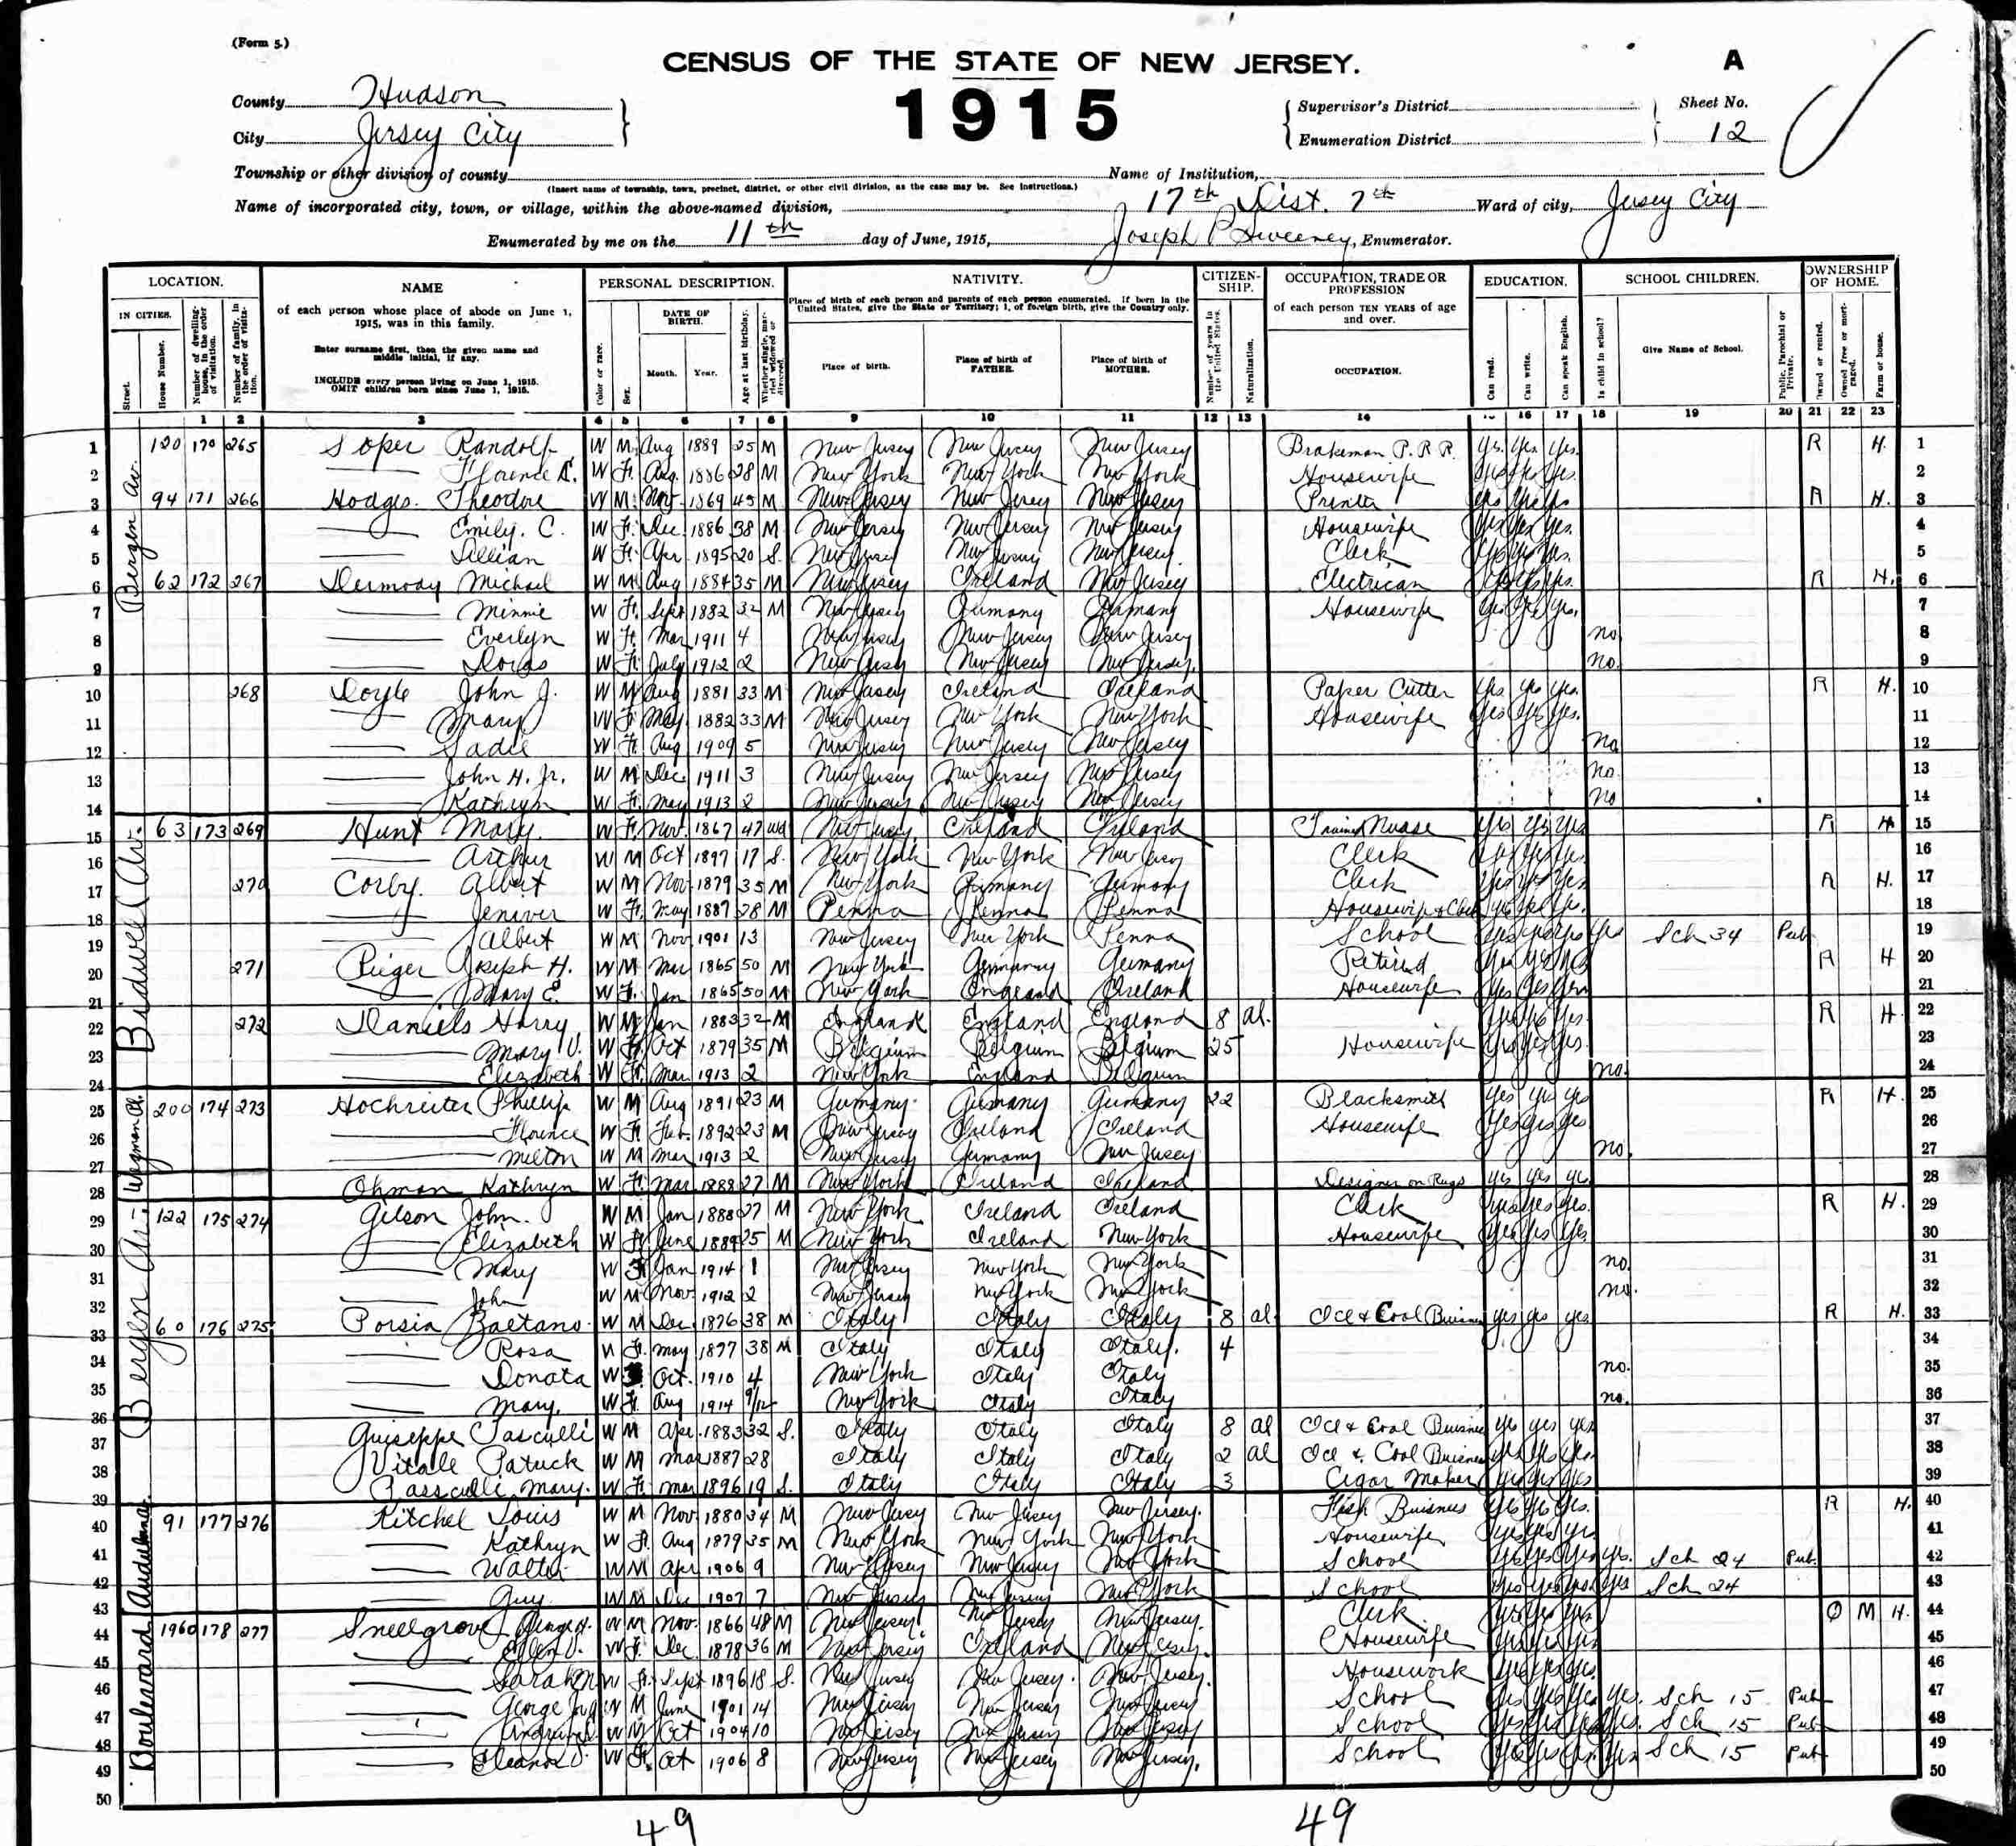 (Form 5.)
CENSUS OF THE STATE OF NEW JERSEY.
A
1915
County Hudson
City Jersey City
Supervisor's District
Enumeration District
Sheet No.
12
Township or other division of county
(Insert name of township, town, precinct, district, or other civil division, as the case may be. See instructions.)
Name of Institution,
Name of incorporated city, town, or village, within the above-named division, 17th Dist. 7th Ward of city, Jersey City
Enumerated by me on the 11th day of June, 1915, Joseph P Sweeney, Enumerator.
LOCATION. NAME PERSONAL DESCRIPTION. NATIVITY. CITIZENSHIP. OCCUPATION, TRADE OR PROFESSION EDUCATION. SCHOOL CHILDREN. OWNERSHIP OF HOME.
IN CITIES. Street. House Number. Number of dwelling-house, in the order of visitation. Number of family, in the order of visitation.
of each person whose place of abode on June 1, 1915, was in this family.
Enter surname first, then the given name and middle initial, if any.
INCLUDE every person living on June 1, 1915.
OMIT children born since June 1, 1915.
Color or race. Sex. DATE OF BIRTH. Month. Year. Age at last birthday. Whether single, married, widowed or divorced.
Place of birth of each person and parents of each person enumerated. If born in the United States, give the State or Territory; if of foreign birth, give the Country only.
Place of birth. Place of birth of FATHER. Place of birth of MOTHER.
Number of years in the United States. Naturalization.
of each person TEN YEARS of age and over.
OCCUPATION.
Can read. Can write. Can speak English. Is child in school? Give Name of School. Public, Parochial or Private. Owned or rented. Owned free or mortgaged. Farm or house.
1 2 3 4 5 6 7 8 9 10 11 12 13 14 16 17 18 19 20 21 22 23
1 Bergen Av. 120 170 265 Soper Randolf W M Aug 1889 25 M New Jersey New Jersey New Jersey Brakeman P. R R. Yes. Yes. Yes. R H. 1
2 Florence W F. Aug. 1886 28 M New York New York New York Housewife Yes Yes Yes. 2
3 94 171 266 Hodges. Theodore W M. Nov. 1869 45 M New Jersey New Jersey New Jersey Printer Yes Yes Yes R H. 3
4 Emily. C. W F. Dec. 1886 38 M New Jersey New Jersey New Jersey Housewife Yes Yes Yes. 4
5 Lillian W F. Apr. 1895 20 S. New Jersey New Jersey New Jersey. Clerk Yes Yes Yes. 5
6 62 172 267 Dermody Michael W M. Aug 1884 35 M New Jersey Ireland New Jersey Electrican Yes Yes Yes. R H. 6
7 Minnie W F. Sept 1882 32 M New Jersey Germany Germany Housewife Yes Yes Yes. 7
8 Everlyn W F. Mar 1911 4 New Jersey New Jersey New Jersey no 8
9 Doris W F. July 1912 2 New Jersey New Jersey New Jersey. no. 9
10 268 Doyle John J. W M Aug 1881 33 M New Jersey Ireland Ireland Paper Cutter Yes Yes Yes. R H. 10
11 Mary W F. May. 1882 33 M New Jersey New York New York Housewife Yes Yes Yes. 11
12 Sadie W F. Aug 1909 5 New Jersey New Jersey New Jersey no 12
13 John H. Jr. W M Dec 1911 3 New Jersey New Jersey New Jersey no. 13
14 Kathryn W F. May 1913 2 New Jersey New Jersey New Jersey no 14
15 Bidwell Av. 63 173 269 Hunt Mary. W F. Nov. 1867 47 wd New Jersey Ireland Ireland Trained Nurse Yes Yes Yes R H 15
16 Arthur W M Oct 1897 17 S. New York New York New Jersey Clerk Yes Yes Yes. 16
17 270 Corby. Albert W M Nov 1879 35 M New York Germany Germany Clerk Yes Yes Yes R H. 17
18 Jeniver W F. May 1887 28 M Penna Penna Penna Housewife & Clerk Yes Yes Yes. 18
19 Albert W M Nov 1901 13 New Jersey New York Penna School Yes Yes Yes Yes Sch 34 Pub 19
20 271 Rieger Joseph H. W M Mar 1865 50 M New York Germany Germany Retired Yes Yes Yes R H 20
21 Mary E. W F. Jan 1865 50 M New York England Ireland Housewife Yes Yes Yes 21
22 272 Daniels Harry W M Jan 1883 32 M England England England 8 al. Yes Yes Yes. R H. 22
23 Mary V. W F. Oct 1879 35 M Belgium Belgium Belgium 25 Housewife Yes Yes Yes. 23
24 Elizabeth W F. Mar 1913 2 New York England Belgium no. 24
25 Wegman Pl. 200 174 273 Hochreiter Phillip W M Aug 1891 23 M Germany. Germany Germany 22 Blacksmith Yes Yes Yes R H. 25
26 Florence W F. Feb. 1892 23 M New Jersey Ireland Ireland Housewife Yes Yes Yes 26
27 Milton W M Mar 1913 2 New Jersey Germany New Jersey no. 27
28 Ohman Kathryn W F. Mar 1888 27 M New York Ireland Ireland Designer on Rugs Yes Yes Yes 28
29 Bergen Av. 122 175 274 Gilson John. W M Jan 1888 27 M New York Ireland Ireland Clerk Yes Yes Yes. R H. 29
30 Elizabeth W F. June 1889 25 M New York Ireland New York Housewife Yes Yes Yes 30
31 Mary W F Jan 1914 1 New Jersey New York New York no. 31
32 John W M Nov 1912 2 New Jersey New York New York no. 32
33 60 176 275 Porsia Gaetano. W M Dec 1876 38 M Italy Italy Italy 8 al Ice & Coal Buisness yes yes yes R H. 33
34 Rosa W F. May 1877 38 M Italy Italy Italy. 4 34
35 Donata W Oct. 1910 4 New York Italy Italy no. 35
36 Mary. W F. Aug 1914 9/12 New York Italy Italy no. 36
37 Guiseppe Pasculli W M Apr. 1883 32 S. Italy Italy Italy 8 al Ice & Coal Buisness yes yes yes 37
38 Vitale Patrick W M Mar 1887 28 Italy Italy Italy 2 al Ice & Coal Buisness yes yes yes 38
39 Passculli Mary. W F. Mar 1896 19 S. Italy Italy Italy 3 Cigar Maker Yes Yes Yes 39
40 91 177 276 Kitchel Louis W M Nov 1880 34 M New Jersey New Jersey New Jersey. Fish Buisness Yes Yes Yes. R H. 40
41 Kathryn W F. Aug 1879 35 M New York New York New York Housewife Yes Yes Yes 41
42 Walter W M Apr 1906 9 New Jersey New Jersey New York School Yes Yes Yes Yes. Sch 24 Pub. 42
43 Guy W M Dec 1907 7 New Jersey New Jersey New York School Yes Yes Yes Yes Sch 24 43
44 Boulevard 1960 178 277 Sneelgrove George H. W M Nov. 1866 48 M New Jersey New Jersey New Jersey. Clerk Yes Yes Yes O M H. 44
45 Ellen V. W F. Dec 1878 36 M New Jersey Ireland New Jersey. Housewife Yes Yes Yes 45
46 Sarah M W F. Sept 1896 18 S. New Jersey New Jersey. New Jersey. Housework Yes Yes Yes. 46
47 George W M June 1901 14 New Jersey New Jersey New Jersey School Yes Yes Yes Yes. Sch 15 Pub 47
48 Andrew W M Oct 1904 10 New Jersey New Jersey New Jersey School Yes Yes Yes Yes. Sch 15 Pub 48
49 Eleanor V. W F. Oct 1906 8 New Jersey New Jersey New Jersey. School Yes Yes Yes Yes Sch 15 Pub 49
50 50
49 49